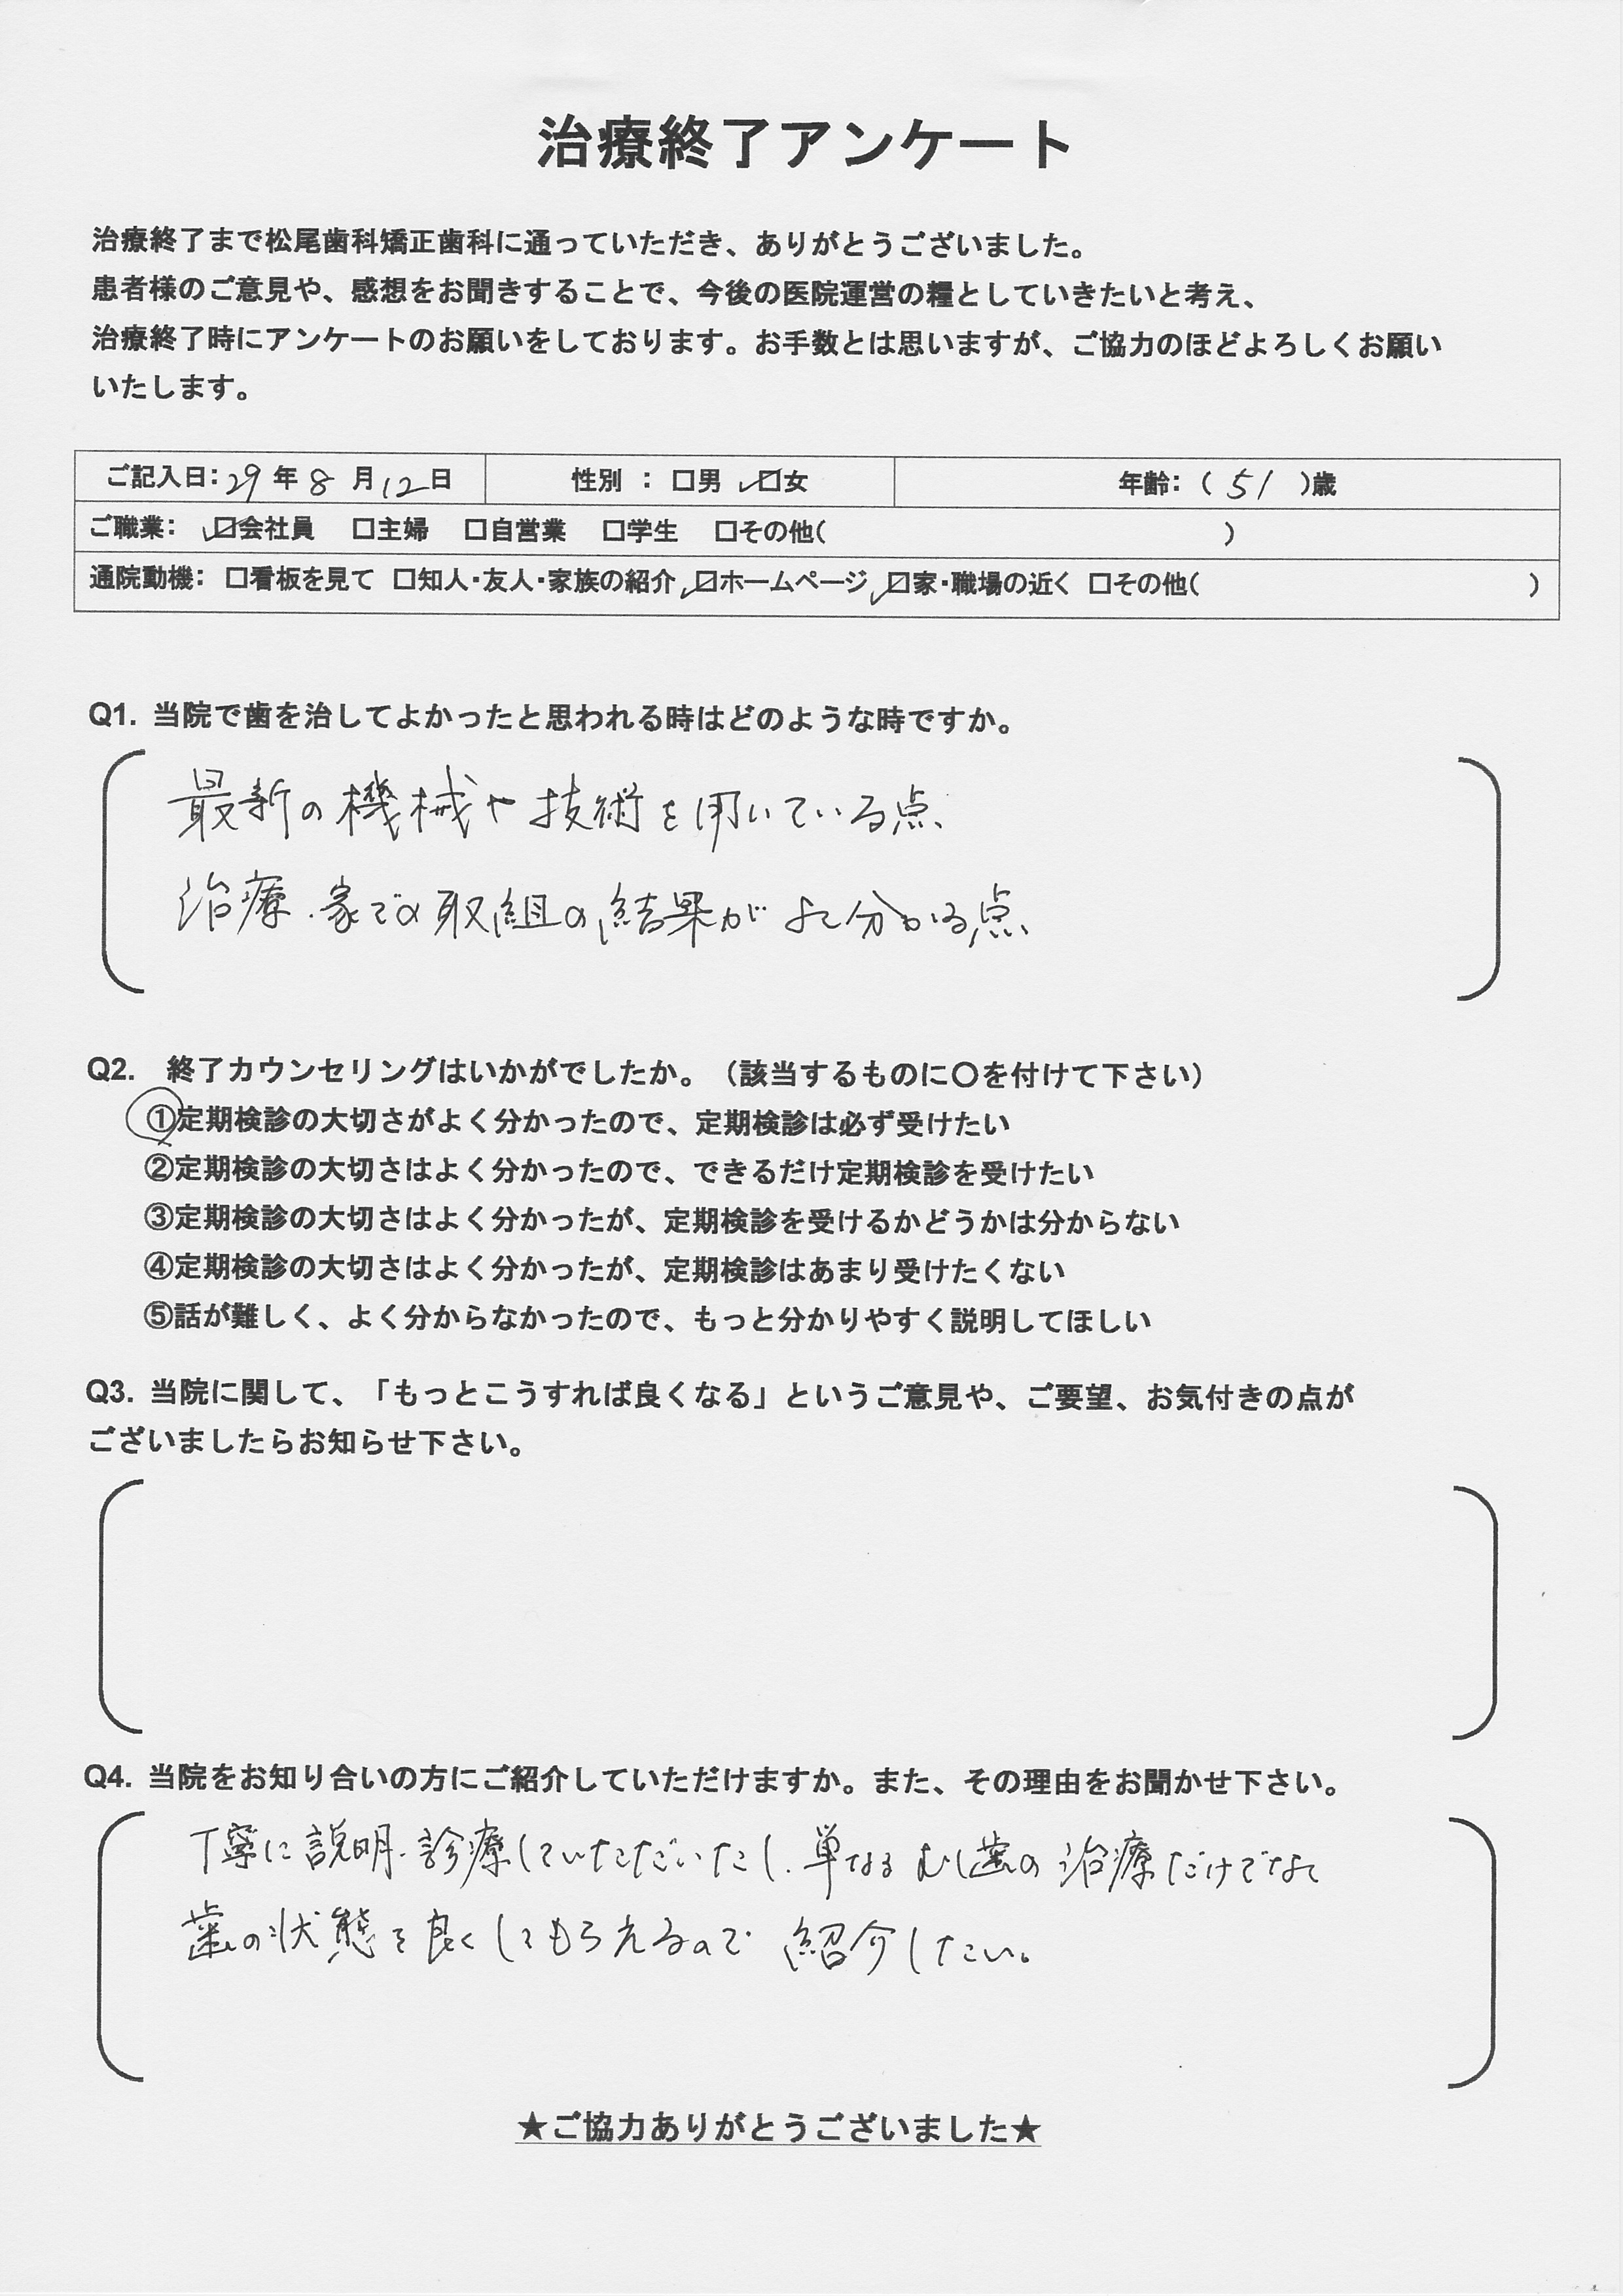 治療終了アンケート
治療終了まで松尾歯科矯正歯科に通っていただき、ありがとうございました。
患者様のご意見や、感想をお聞きすることで、今後の医院運営の糧としていきたいと考え、
治療終了時にアンケートのお願いをしております。お手数とは思いますが、ご協力のほどよろしくお願い
いたします。
ご記入日：29年8月12日 性別：□男 ☑女 年齢：（51）歳
ご職業： ☑会社員 □主婦 □自営業 □学生 □その他（ ）
通院動機：□看板を見て □知人・友人・家族の紹介 ☑ホームページ ☑家・職場の近く □その他（ ）
Q1. 当院で歯を治してよかったと思われる時はどのような時ですか。
最新の機械や技術を用いている点、
治療・家での取組の結果がよく分かる点、
Q2. 終了カウンセリングはいかがでしたか。（該当するものに〇を付けて下さい）
①定期検診の大切さがよく分かったので、定期検診は必ず受けたい
②定期検診の大切さはよく分かったので、できるだけ定期検診を受けたい
③定期検診の大切さはよく分かったが、定期検診を受けるかどうかは分からない
④定期検診の大切さはよく分かったが、定期検診はあまり受けたくない
⑤話が難しく、よく分からなかったので、もっと分かりやすく説明してほしい
Q3. 当院に関して、「もっとこうすれば良くなる」というご意見や、ご要望、お気付きの点が
ございましたらお知らせ下さい。
Q4. 当院をお知り合いの方にご紹介していただけますか。また、その理由をお聞かせ下さい。
丁寧に説明・診療していただいたし、単なるむし歯の治療だけでなく
歯の状態を良くしてもらえるので紹介したい。
★ご協力ありがとうございました★